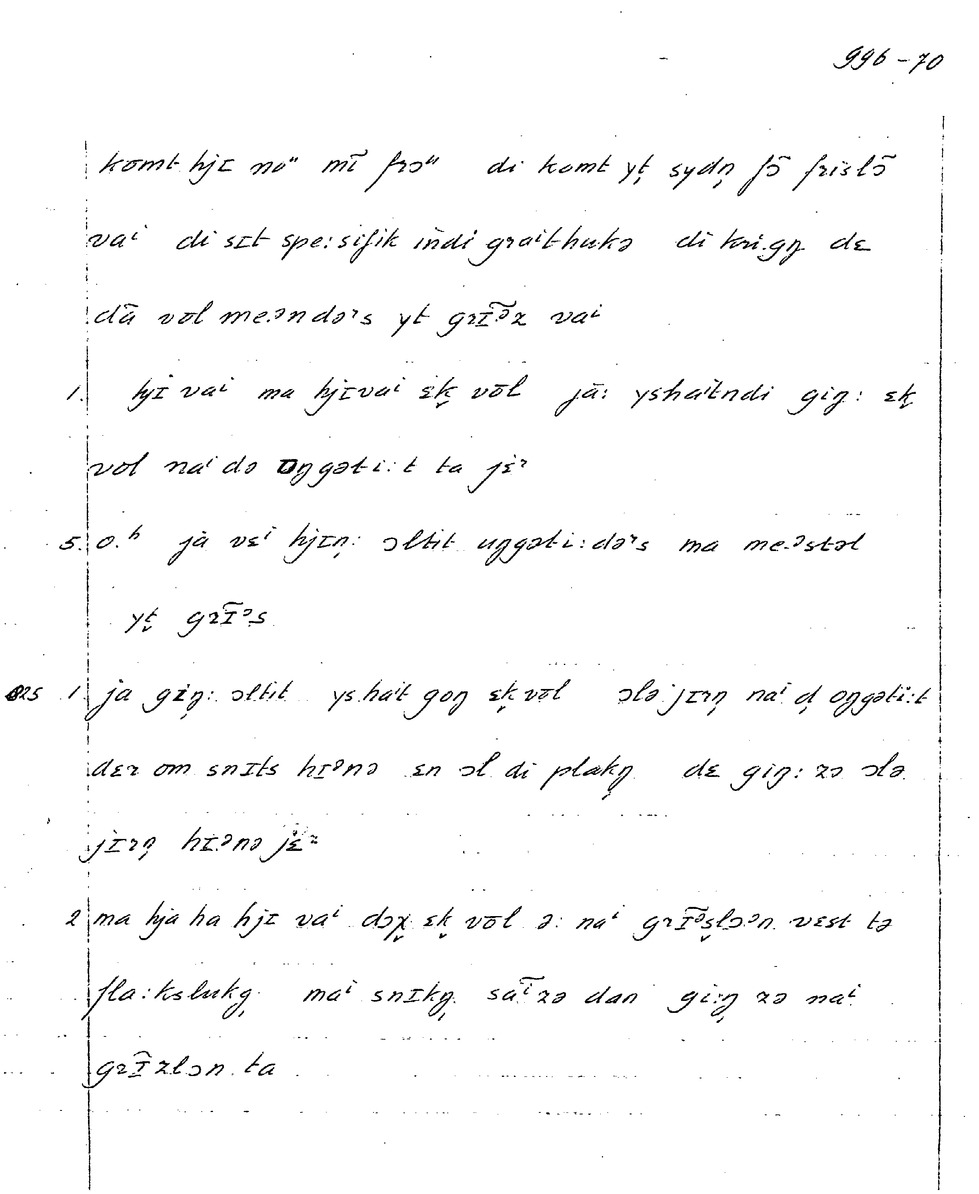 996-70
komt hjɪ nōᵘ mī frɔᵘ di komt yt̬ sydn̩ fɔ̄ frislɔ̃
vaⁱ di sɪt spe:sifik indi graithukə di kri.gŋ̩ dɛ
dā vōl me.ᵊndəʳs yt grɪ̃.ᵊz vaⁱ
1. hjɪ vaⁱ ma hjɪvaⁱ ɛk̬ vōl jā: yshaⁱtndi giŋ: ɛk̬
vol naⁱ də ɔŋgəti:t ta jɛʳ
5. o.ʰ jà vɛⁱ hjɪn̩: ɔltit uŋgəti:dəʳs ma me.ᵊstəl
yt̬ grɪ̃ᵊs̬
825 1. ja giŋ: ɔltit yshaⁱt goŋ ɛk̬ vōl ɔlə jɪrn̩ naⁱ d̥ oŋgəti:t
dɛr om snɪts hɪᵊnə ɛn ɔl di plakŋ̩ dɛ giŋ: zə ɔlə
jɪrn̩ hɪᵊnə jɛʳ
2 ma hja ha hjɪ vaⁱ dɔχ̬ ɛk̬ vōl ə: naⁱ grɪ̃ᵊs̬lɔən vɛst tə
fla:kslukŋ̩ maⁱ snɪkŋ̩ sãⁱzə dan gi:ŋ̩ zə naⁱ
grɪ̃zlɔn ta